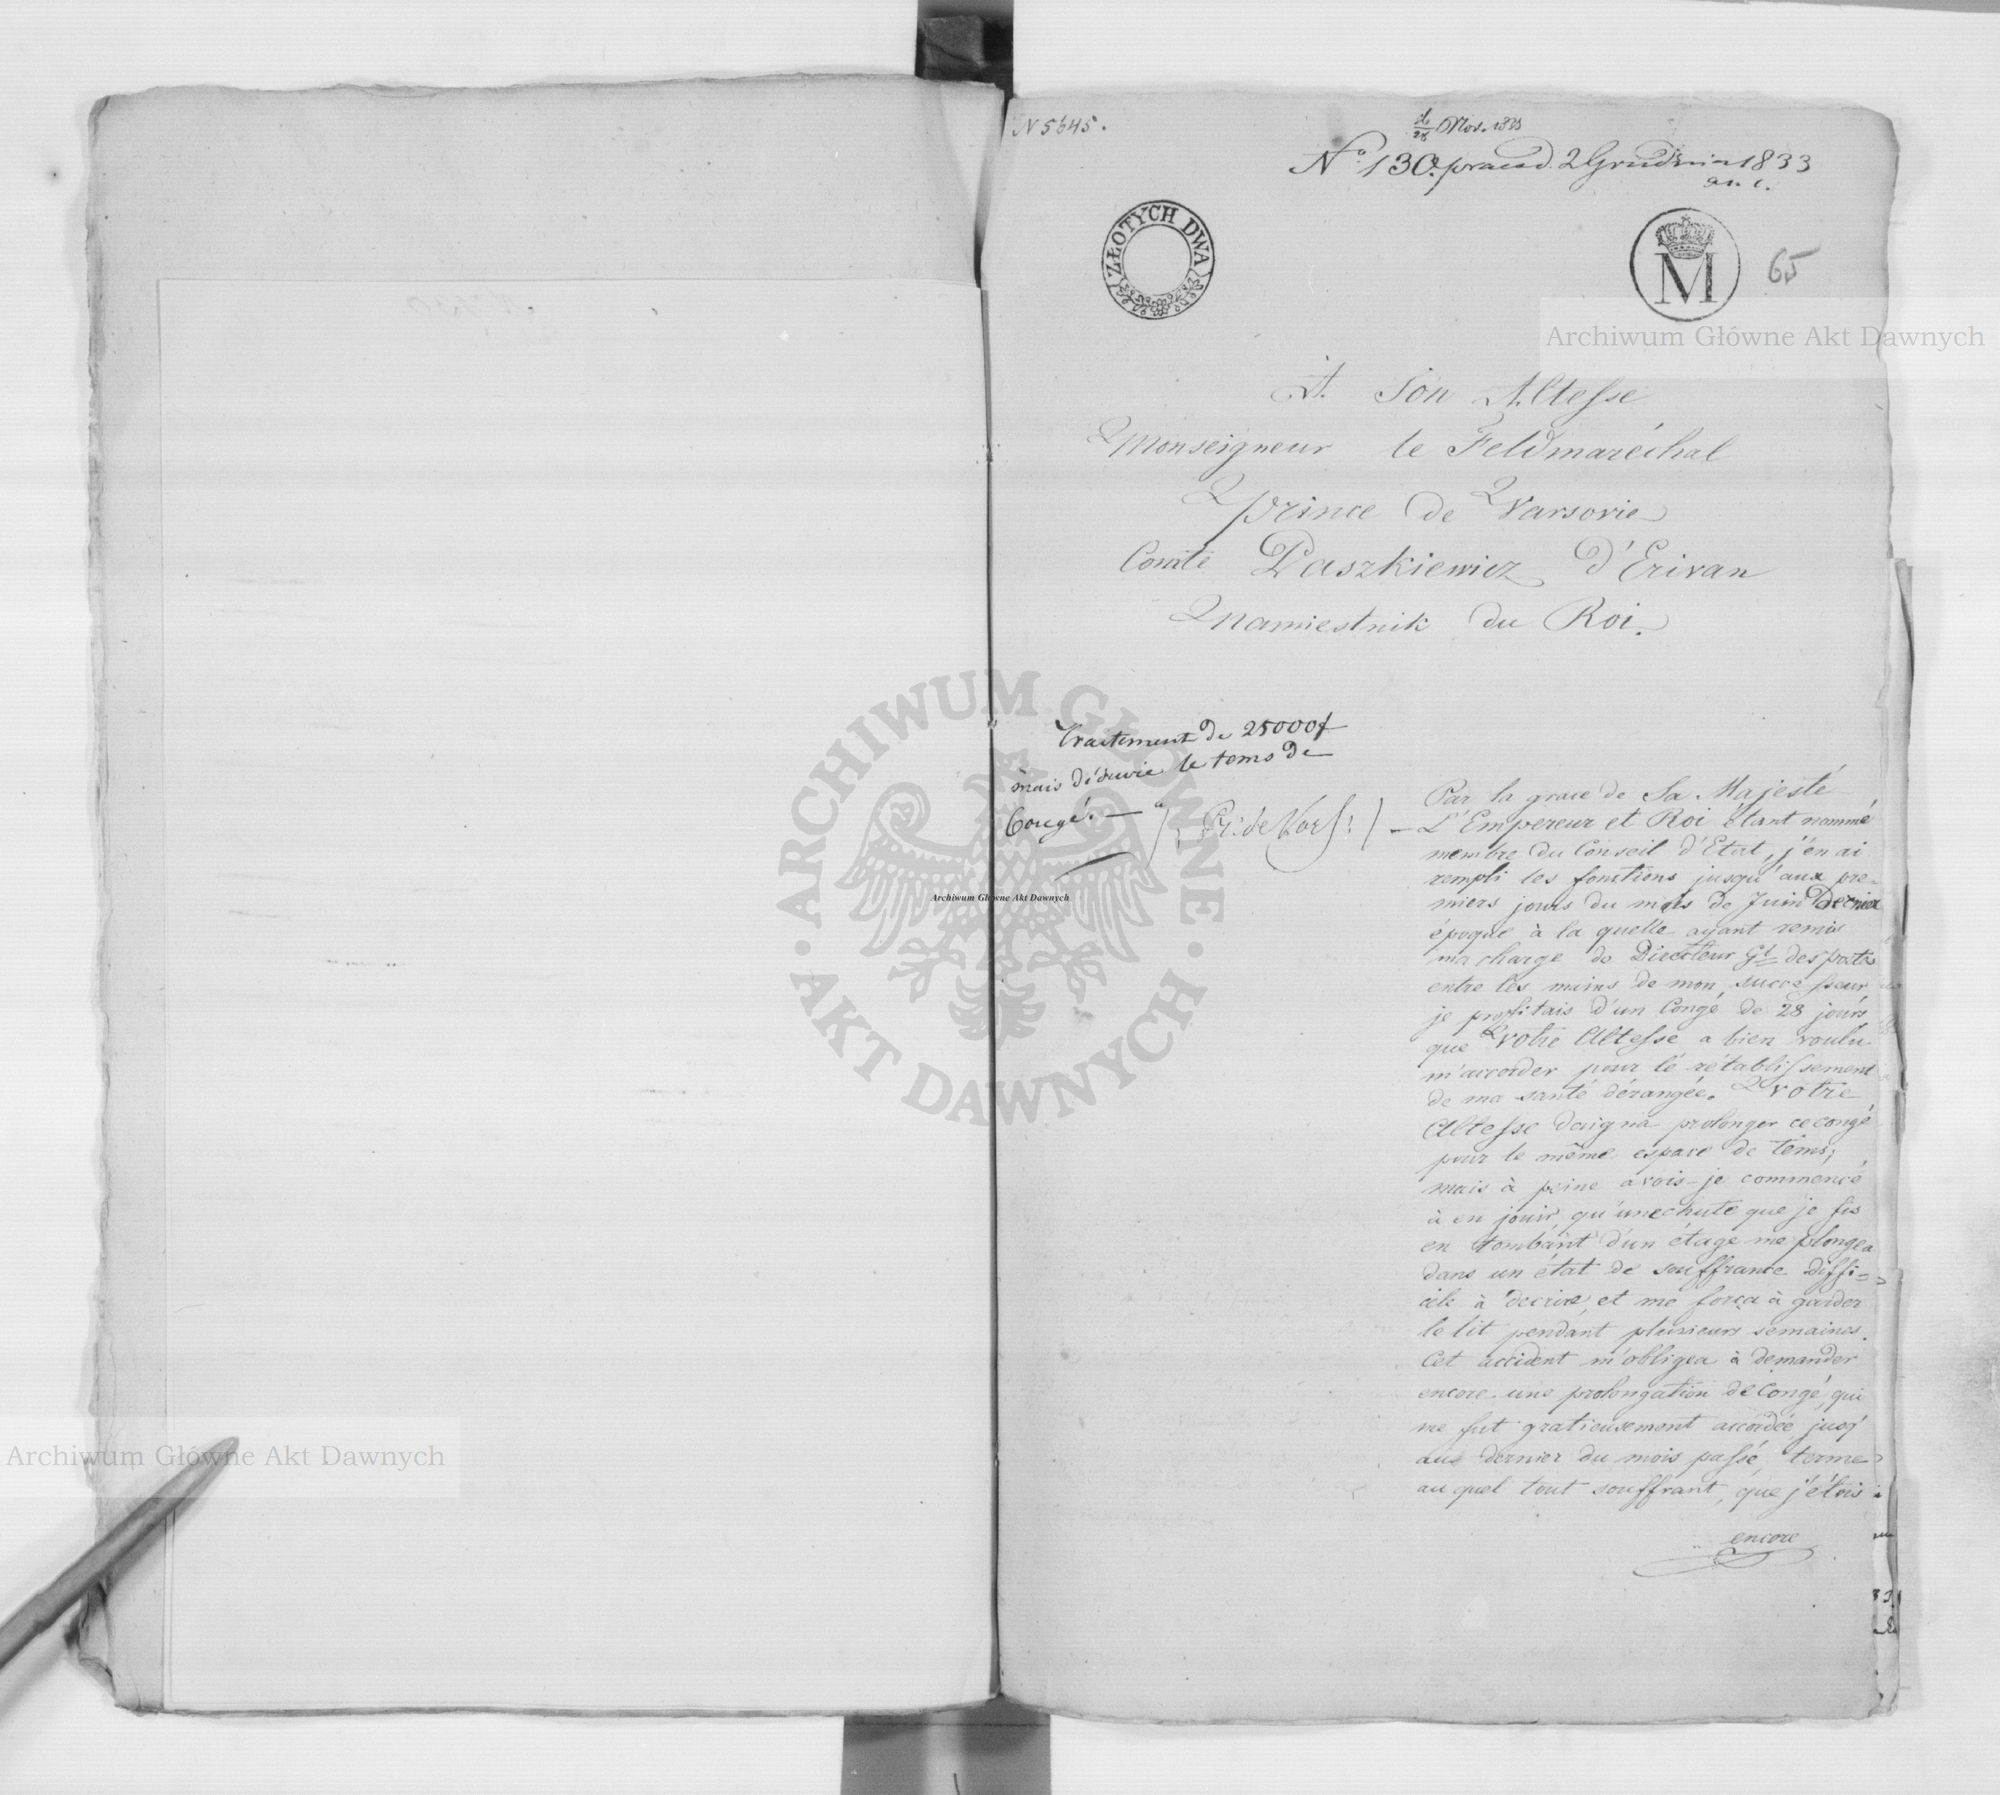 N 5645.
Nov. 1833
Nº 130. praesd. 2 Grudnia 1833
ZŁOTYCH DWA
M
65
Archiwum Główne Akt Dawnych
A Son Altesse
Monseigneur le Feldmaréchal
Prince de Varsovie
Comte Paszkiewicz d'Erivan
Namiestnik du Roi.
Traitement de 25000f
mais déduire le tems de
Congé. —
Par la grace de Sa Majesté
L'Empereur et Roi étant nommé
membre du Conseil d'Etat, j'en ai
rempli les fonctions jusqu'aux pre-
miers jours du mois de Juin dernier
époque à la quelle ayant remis
ma charge de Directeur Gl des postes
entre les mains de mon successeur
je profitais d'un Congé de 28 jours
que Votre Altesse a bien voulu
m'accorder pour le rétablissement
de ma santé dérangée. Votre
Altesse daigna prolonger ce congé
pour le même espace de tems;
mais à peine avois-je commencé
à en jouir, qu'une chute que je fis
en tombant d'un étage me plongea
dans un état de souffrance diffi=
cile à decrire, et me força à garder
le lit pendant plusieurs semaines.
Cet accident m'obligea à demander
encore une prolongation de Congé, qui
me fut gratieusement accordée jusq'
au dernier du mois passé, terme
au quel tout souffrant, que j'étois
encore
ARCHIWUM GŁÓWNE
AKT DAWNYCH
Archiwum Główne Akt Dawnych
Archiwum Główne Akt Dawnych